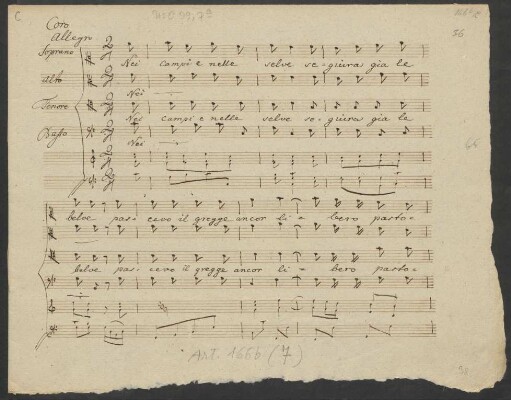 C
WoO 99,7a
36
Coro
Allegro
Soprano
Nei campi e nelle selve se-giurai gia le
Alto
Nei
Tenore
Nei campi e nelle selve se-giurai gia le
Basso
Nei
belve pas-cevo il gregge ancor li- bero pasto-
belve pas-cevo il gregge ancor li- bero pasto-
Art. 166b (7)